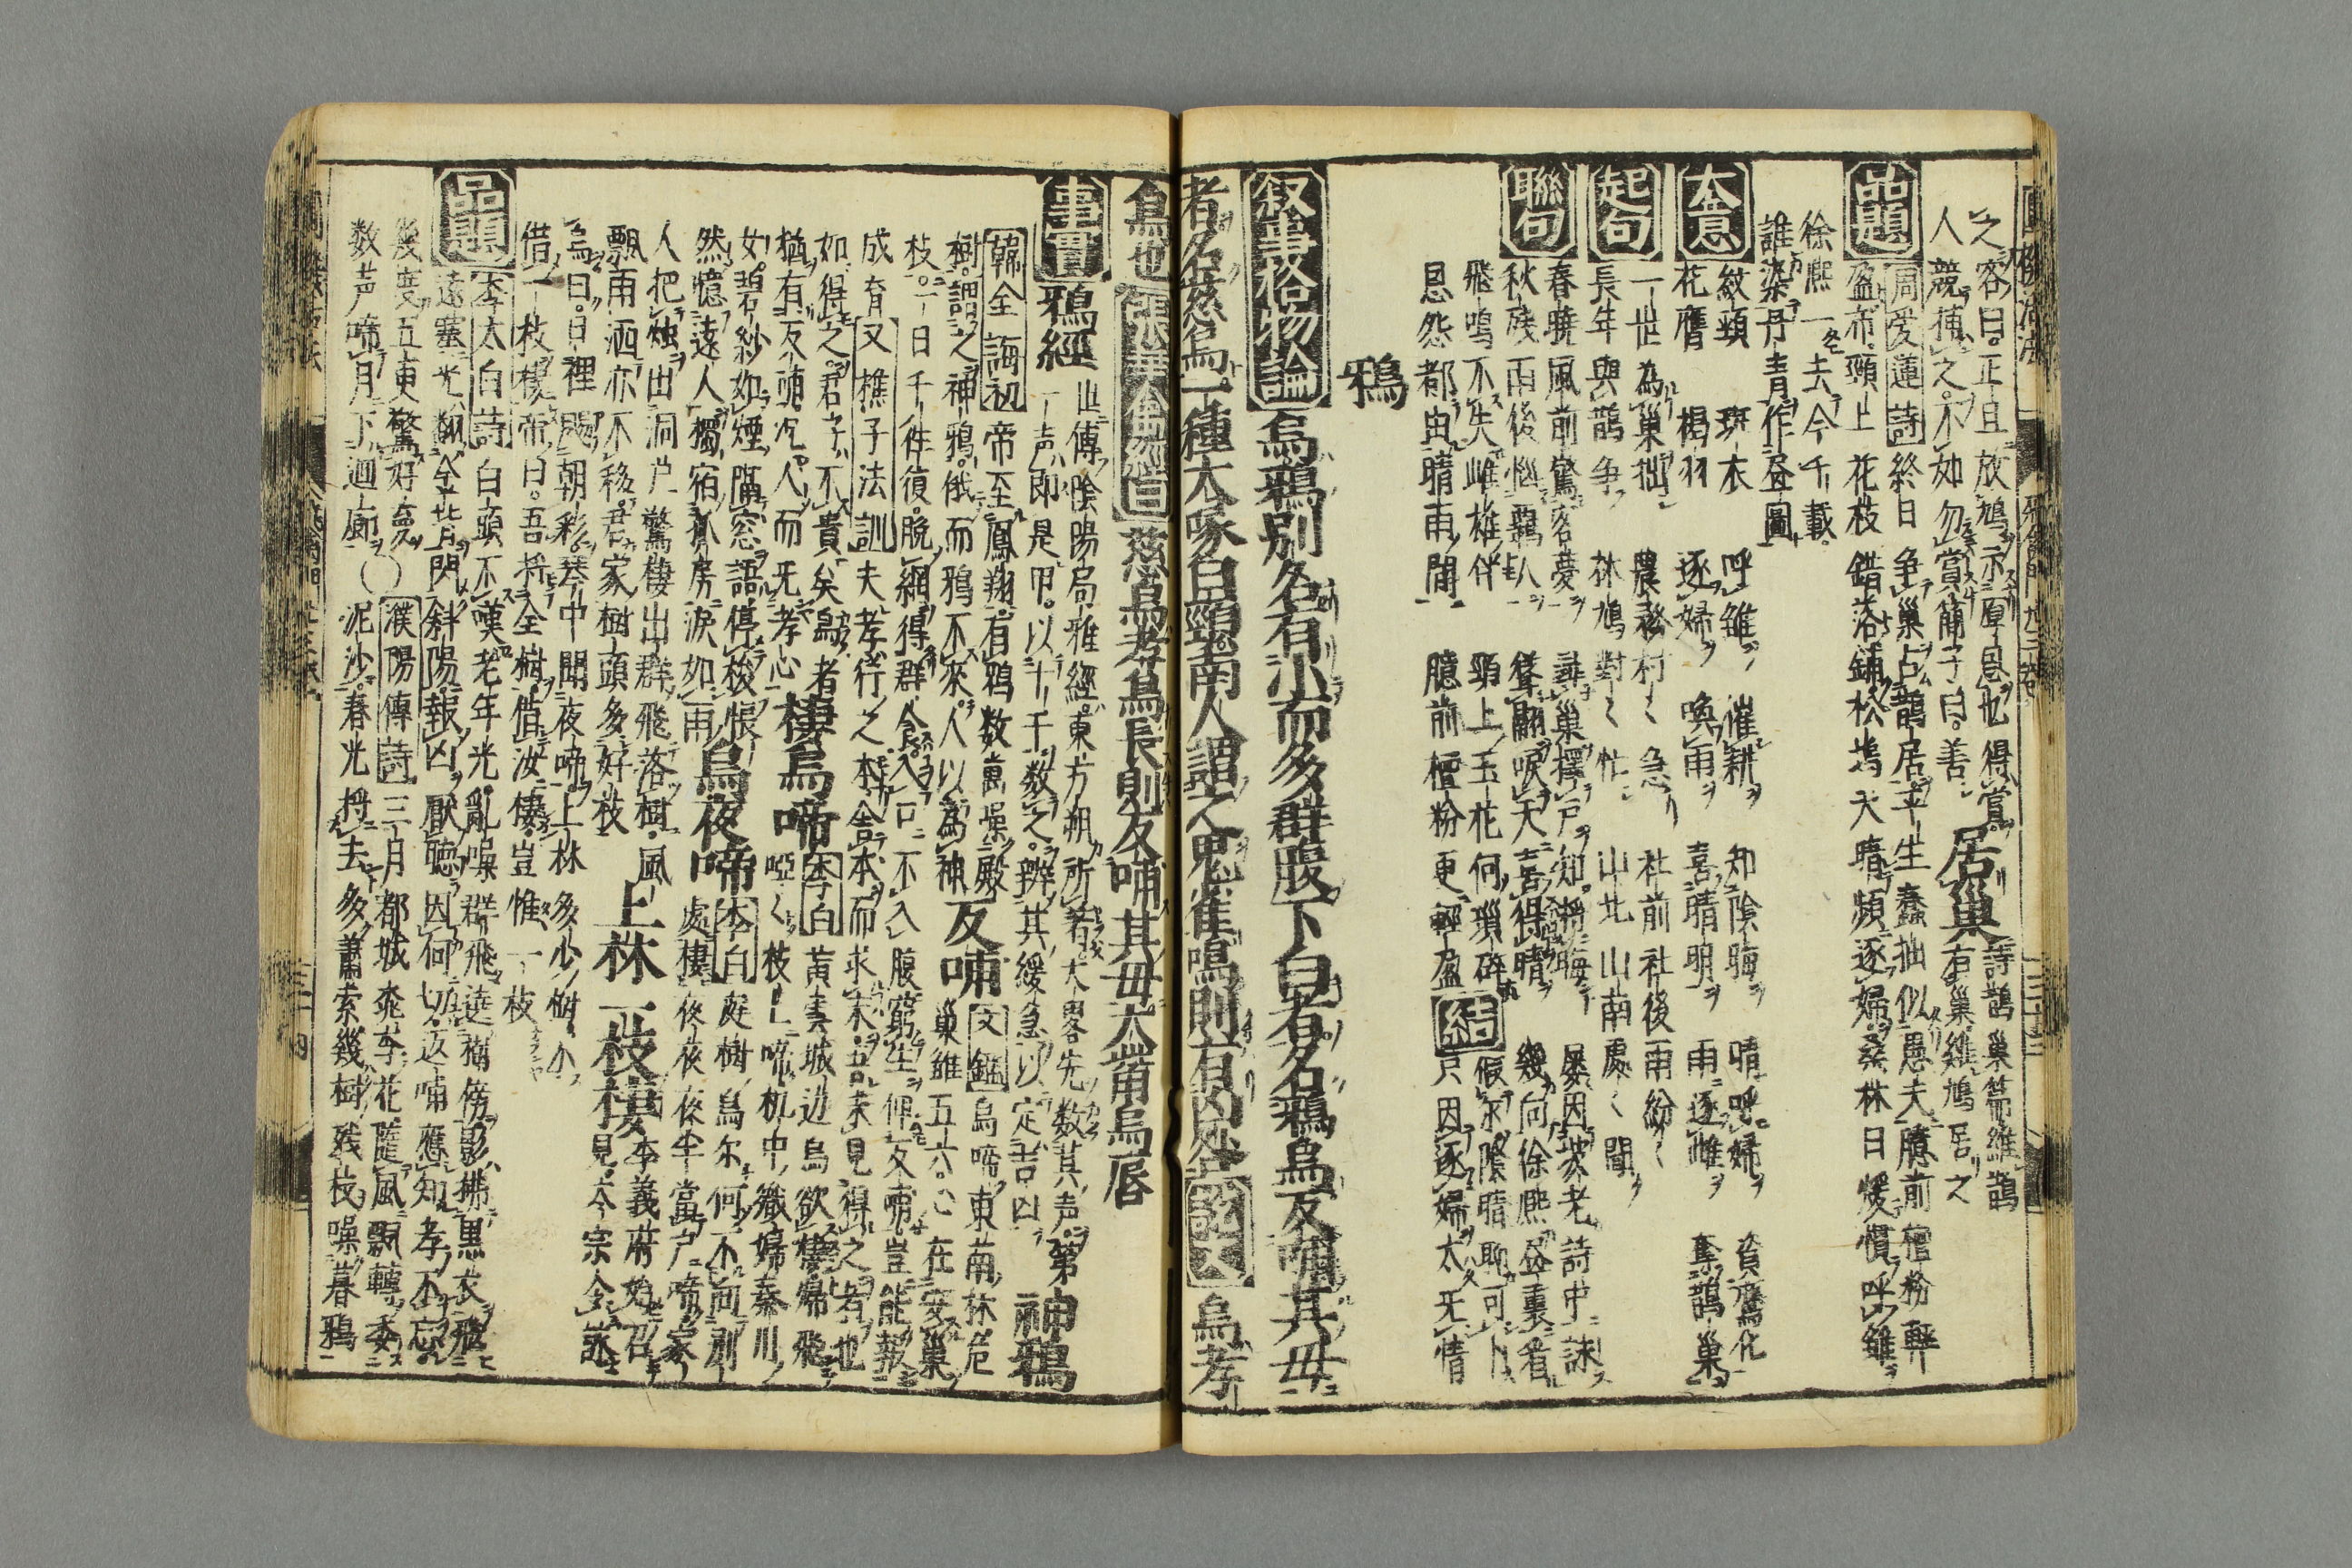 之客曰正旦放鳩示有恩也得賞
人競捕之不如勿賞簡子曰善居巢詩鵲巢篇維鵲
有巢維鳩居之
品題周愛蓮詩終日争巢占鵲居平生蠢拙似愚夫臆前檀粉輕
盈布頸上花枝錯落鋪松塢大晴頻逐婦桑林日煖慣呼雛
徐熙一去今千載
誰染丹青作昼圖
大意紋頸 斑衣 呼雛 催耕 知陰晦 晴呼婦 資鷹化
花膺 褐羽 逐婦 喚雨 喜晴明 雨逐雌 奪鵲巢
起句一世為巢拙 農務村〻急 社前社後雨紛〻
長年與鵲争 林鳩對〻忙 山北山南處〻聞
聯句春暁風前驚客夢 尋巢擇戸知将晦 屡因坡老詩中詠
秋残雨後悩羈臥 聳翮唳天喜得晴 幾向徐熙昼裏看
飛鳴不失雌雄伴 頸上玉花何瑣碎 結句 假尓陰晴聊可卜
恩怨都由晴雨間 臆前檀粉更輕盈 只因逐婦太无情
鴉
叙事格物論烏鴉別名有小而多群腹下白者名鴉烏反哺其母
者名慈烏一種大喙白頸南人謂之鬼雀鳴則有凶咎 烏孝
烏也張華禽經曰慈烏孝烏長則反哺其母大觜烏唇
事實鴉經世傳陰陽局雅經東方朔所著大畧先数其声第
一声即是甲以十干数之辨其緩急以定吉凶神鴉
韓全誨初帝至鳳翔有鴉数萬噪殿
樹謂之神鴉俄而鴉不來人以為神反哺文鑑烏啼東南林危
巢維五六心在安巢
枝一日千件復脱網得群食入口不入腹窮生俾反哺豈能報
成育又樵子法訓夫孝行之本舍本而求末吾未見得之者也
如得之君子不貴矣烏者
猶有反哺况人而无孝心棲烏啼李白黄雲城辺烏欲棲帰飛
啞〻枝上啼机中織婦秦川
女碧紗如煙隔窓語停梭悵
然憶遠人獨宿孤房涙如雨烏夜啼李白庭樹烏尓何不向別
處棲夜夜夜半當戸啼家
人把燭出洞戸驚棲出群飛落樹風
飄雨洒亦不移君家樹頭多好枝上林一枝棲李義府始召
見太宗令詠
烏曰日裡颺朝彩琴中聞夜啼上林多少樹不
借一枝棲帝曰吾将全樹借汝棲豈惟一枝
品題李太白詩白頭不嘆老年光亂噪群飛遶樹傍影拂黒衣飛
遠塞光翻金背閃斜陽報凶厭聴因何切返哺應知孝不忘
幾度五更驚好夢 濮陽傳詩三月都城桃李花隨風飄轉委
数声啼月下廻廊 泥沙春光将去多蕭索幾樹残枝噪暮鴉